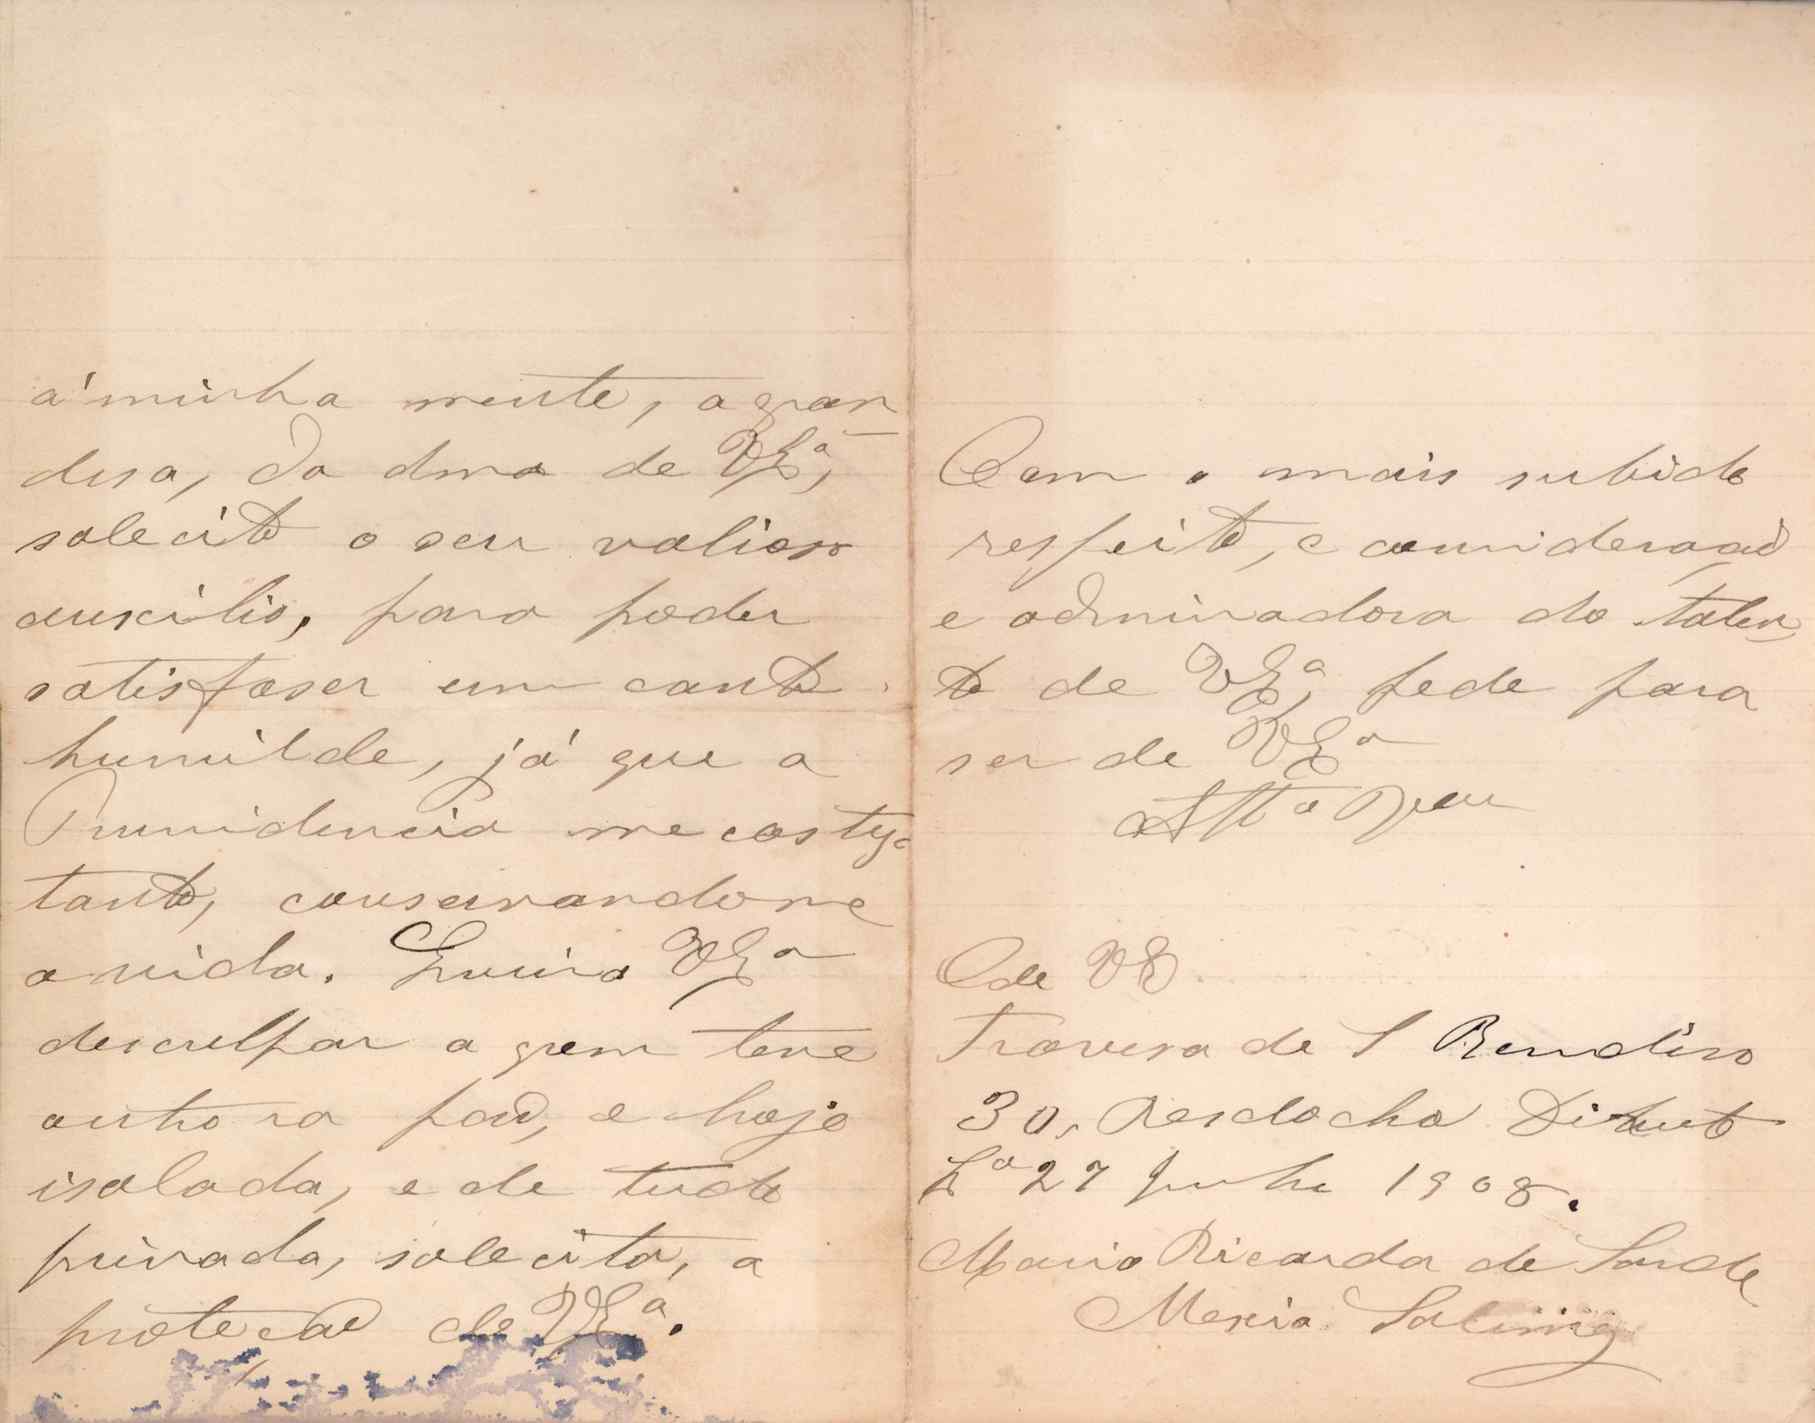 á minha mente, a gran
desa, da alma de VExª,
solecito o seu valioso
auxilio, para poder
satisfaser um canto
humilde, já que a
Prouidencia me castiga
tanto, conservandome
a vida. Queira VExª
desculpar a quem teve
outrora pão, e hoje
isolada, e de tudo
privada, solecita, a
proteção de VExª.
Com o mais subido
respeito, e consideração
e admiradora do talen
to de VExª, pede para
ser de VExª
Attª Ven
C de VE
Travesa de S
30, Resdocha Direito
Lª 27 Junho 1908.
Maria Ricarda de Sande
Mexia Salema